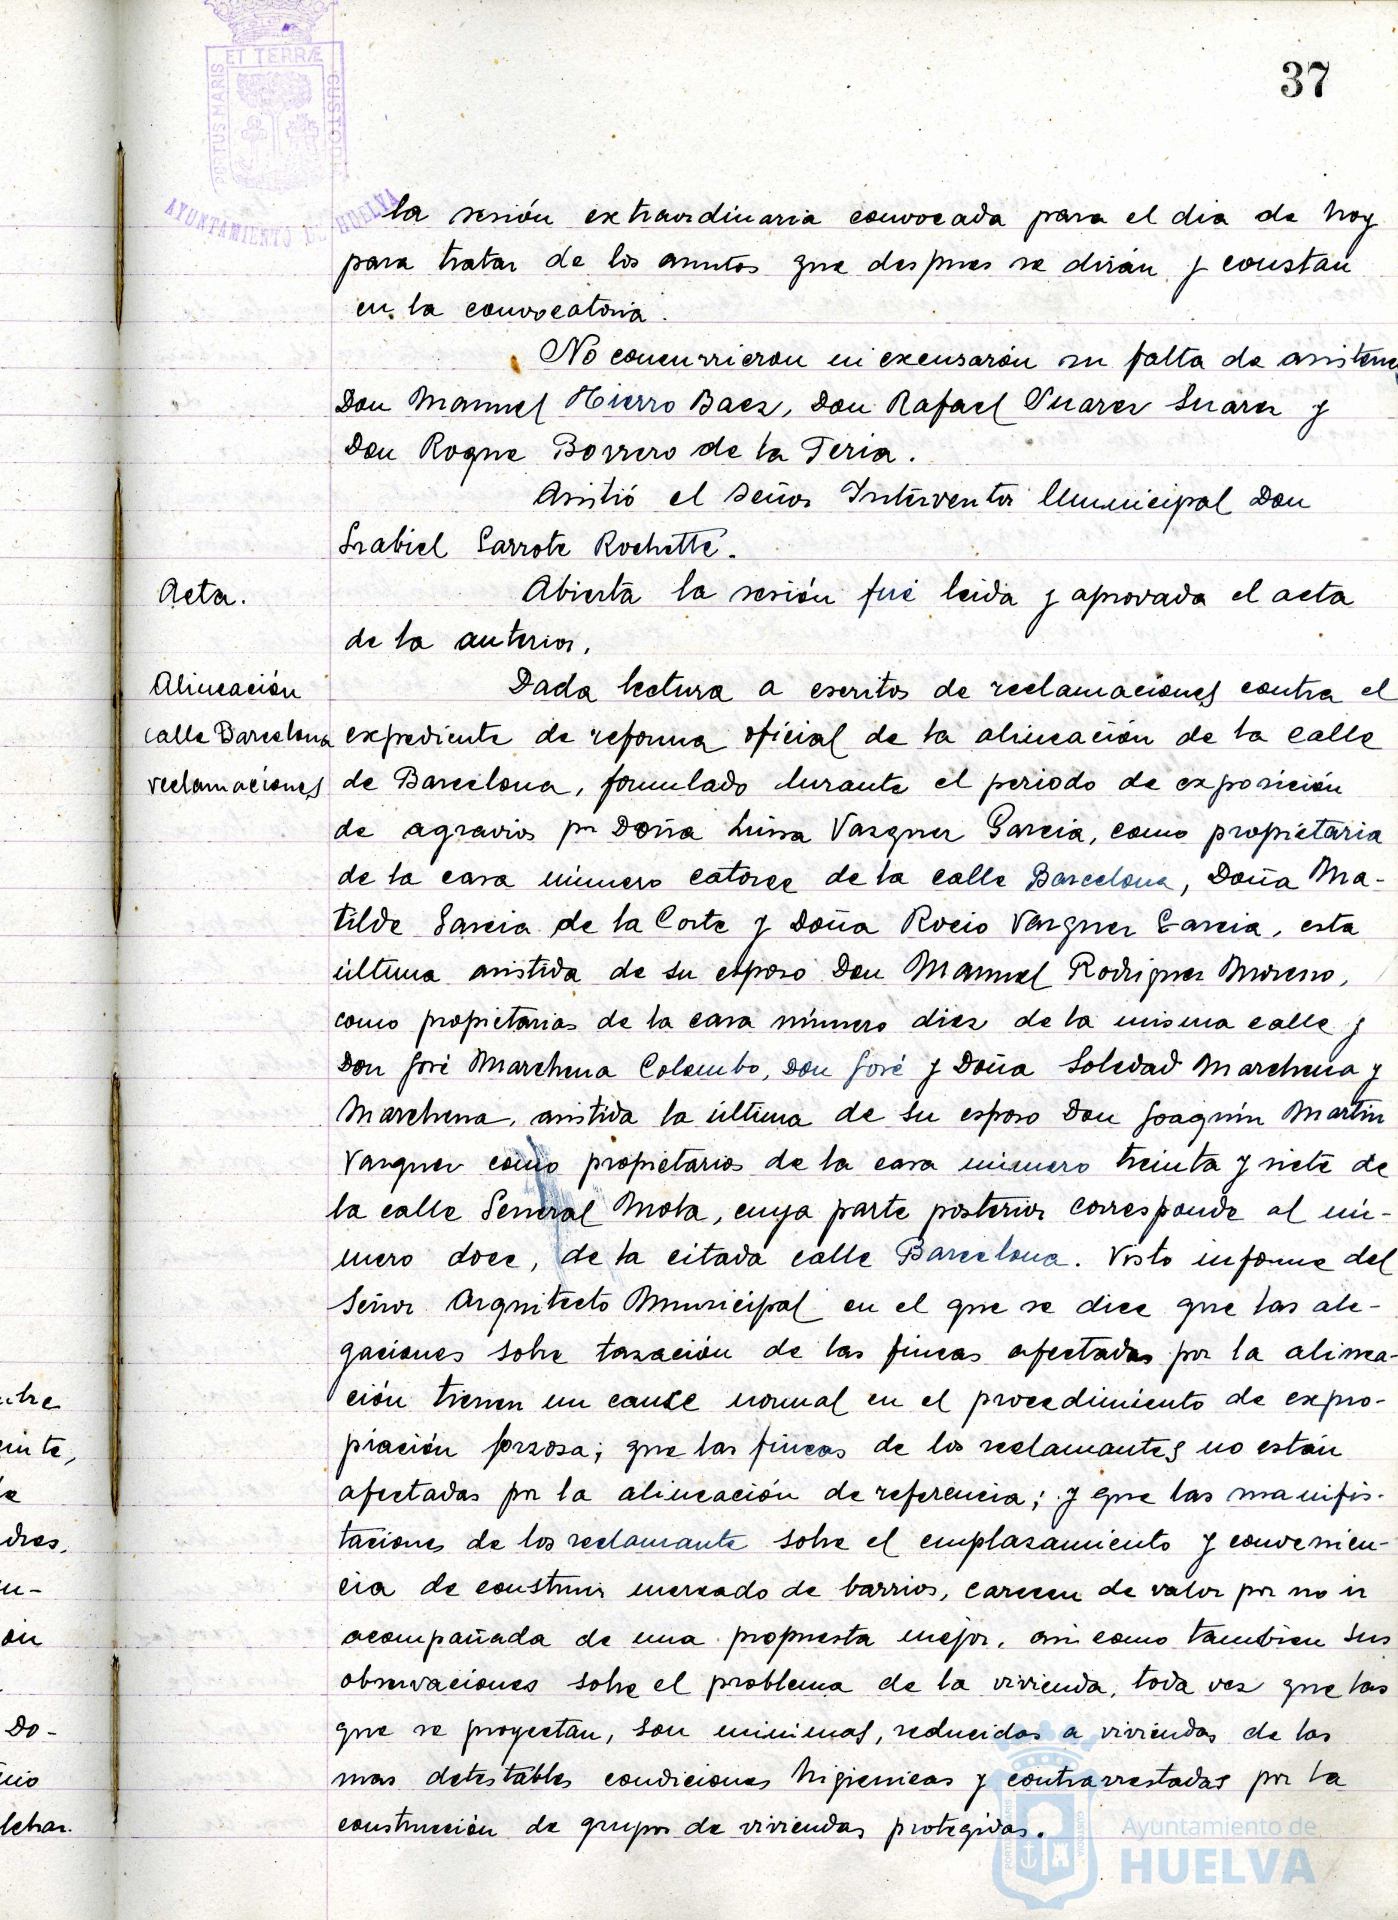 37
ET TERRÆ
PORTUS MARIS
CUSTODIA
AYUNTAMIENTO DE HUELVA
la sesión extraordinaria convocada para el dia de hoy
para tratar de los asuntos que despues se dirán y constan
en la convocatoria.
No concurrieron ni excusarón su falta de asistenc
Don Manuel Hierro Baez, Don Rafael Suarez Suarez y
Don Roque Borrero de la Feria.
Asistió el Señor Interventor Municipal Don
Garrote Rochette.
Acta.
Abierta la sesión fué leida y aprovada el acta
de la anterior.
Alineación
calle Barcelona
reclamaciones
Dada lectura a escritos de reclamaciones contra el
expediente de reforma oficial de la alineación de la calle
de Barcelona, formulado durante el periodo de exposición
de agravios por Doña Luisa Vazquez Garcia, como propietaria
de la casa número catorce de la calle Barcelona, Doña Ma-
tilde Garcia de la Corte y Doña Rocio Vazquez Garcia, esta
última asistida de su esposo Don Manuel Rodriguez Moreno,
como propietarias de la casa número diez de la misma calle y
Don José Marchena Colombo, Don José y Doña Soledad Marchena y
Marchena, asistida la última de su esposo Don Joaquín Martin
Vazquez como propietarios de la casa número treinta y siete de
la calle General Mola, cuya parte posterior corresponde al nú-
mero doce, de la citada calle Barcelona. Visto informe del
Señor Arquitecto Municipal en el que se dice que las ale-
gaciones sobre tasación de las fincas afectadas por la alinea-
ción tienen un cause normal en el procedimiento de expro-
piación forzosa; que las fincas de los reclamantes no están
afectadas por la alineación de referencia; y que las manifes-
taciones de los reclamante sobre el emplazamiento y convenien-
cia de construir mercado de barrios, carecen de valor por no ir
acompañada de una propuesta mejor, asi como tambien sus
observaciones sobre el problema de la vivienda, toda vez que las
que se proyectan, son minimas, reducidas a viviendas de las
mas detestables condiciones higienicas y contrarrestadas por la
construcción de grupos de viviendas protegidas.
Ayuntamiento de
HUELVA